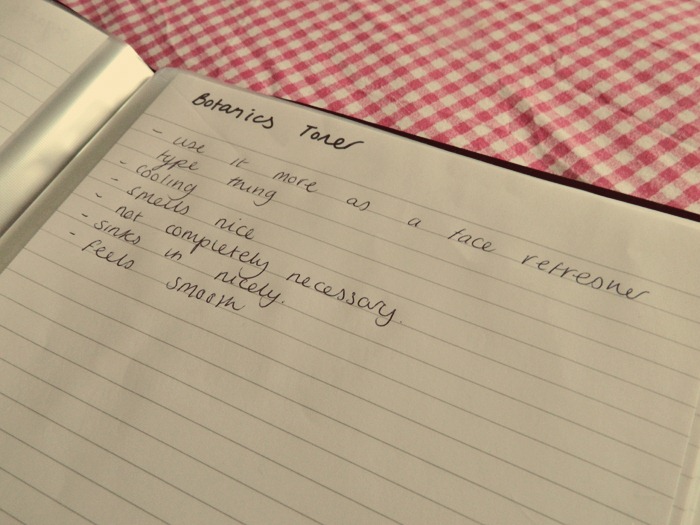 Botanics Toner
- use it more as a face refresher
type thing
- cooling
- smells nice
- not completely necessary.
- sinks in nicely.
- feels smooth